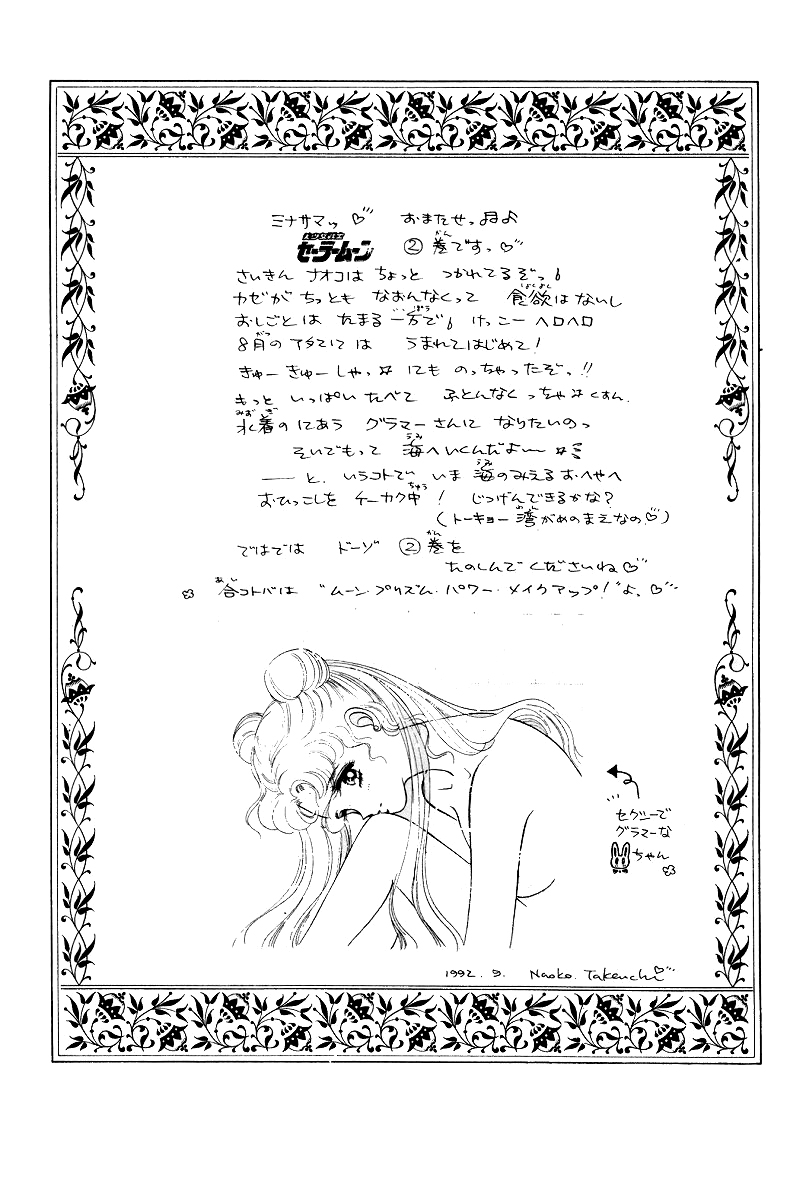 ミナサマッ♡ おまたせっ♫♪
美少女戦士
セーラームーン ②巻(かん)ですっ♡
さいきん ナオコは ちょっと つかれてるぞっ!
カゼが ちっとも なおんなくって 食欲(しょくよく)はないし
おしごとは たまる一方(いっぽう)で! けっこーヘロヘロ
8月(がつ)の アタマには うまれてはじめて!
きゅーきゅーしゃっ☆ にも のっちゃったぞっ!!
もっと いっぱい たべて ふとんなくっちゃ☆くすん.
水着(みずぎ)の にあう グラマーさんに なりたいのっ
そいでもって 海(うみ)へいくんだよ〜☆ミ
—— と、いうコトで いま 海(うみ)のみえるおへやへ
おひっこしを ケーカク中(ちゅう)! じつげんできるかな?
(トーキョー湾(わん)がめのまえなの♡)
ではでは ドーゾ ②巻(かん)を
たのしんで くださいね♡
合(あい)コトバは “ムーン・プリズム・パワー・メイクアップ!”よ、♡
セクシーで
グラマーな
ちゃん
1992. 9. Naoko. Takeuchi♡